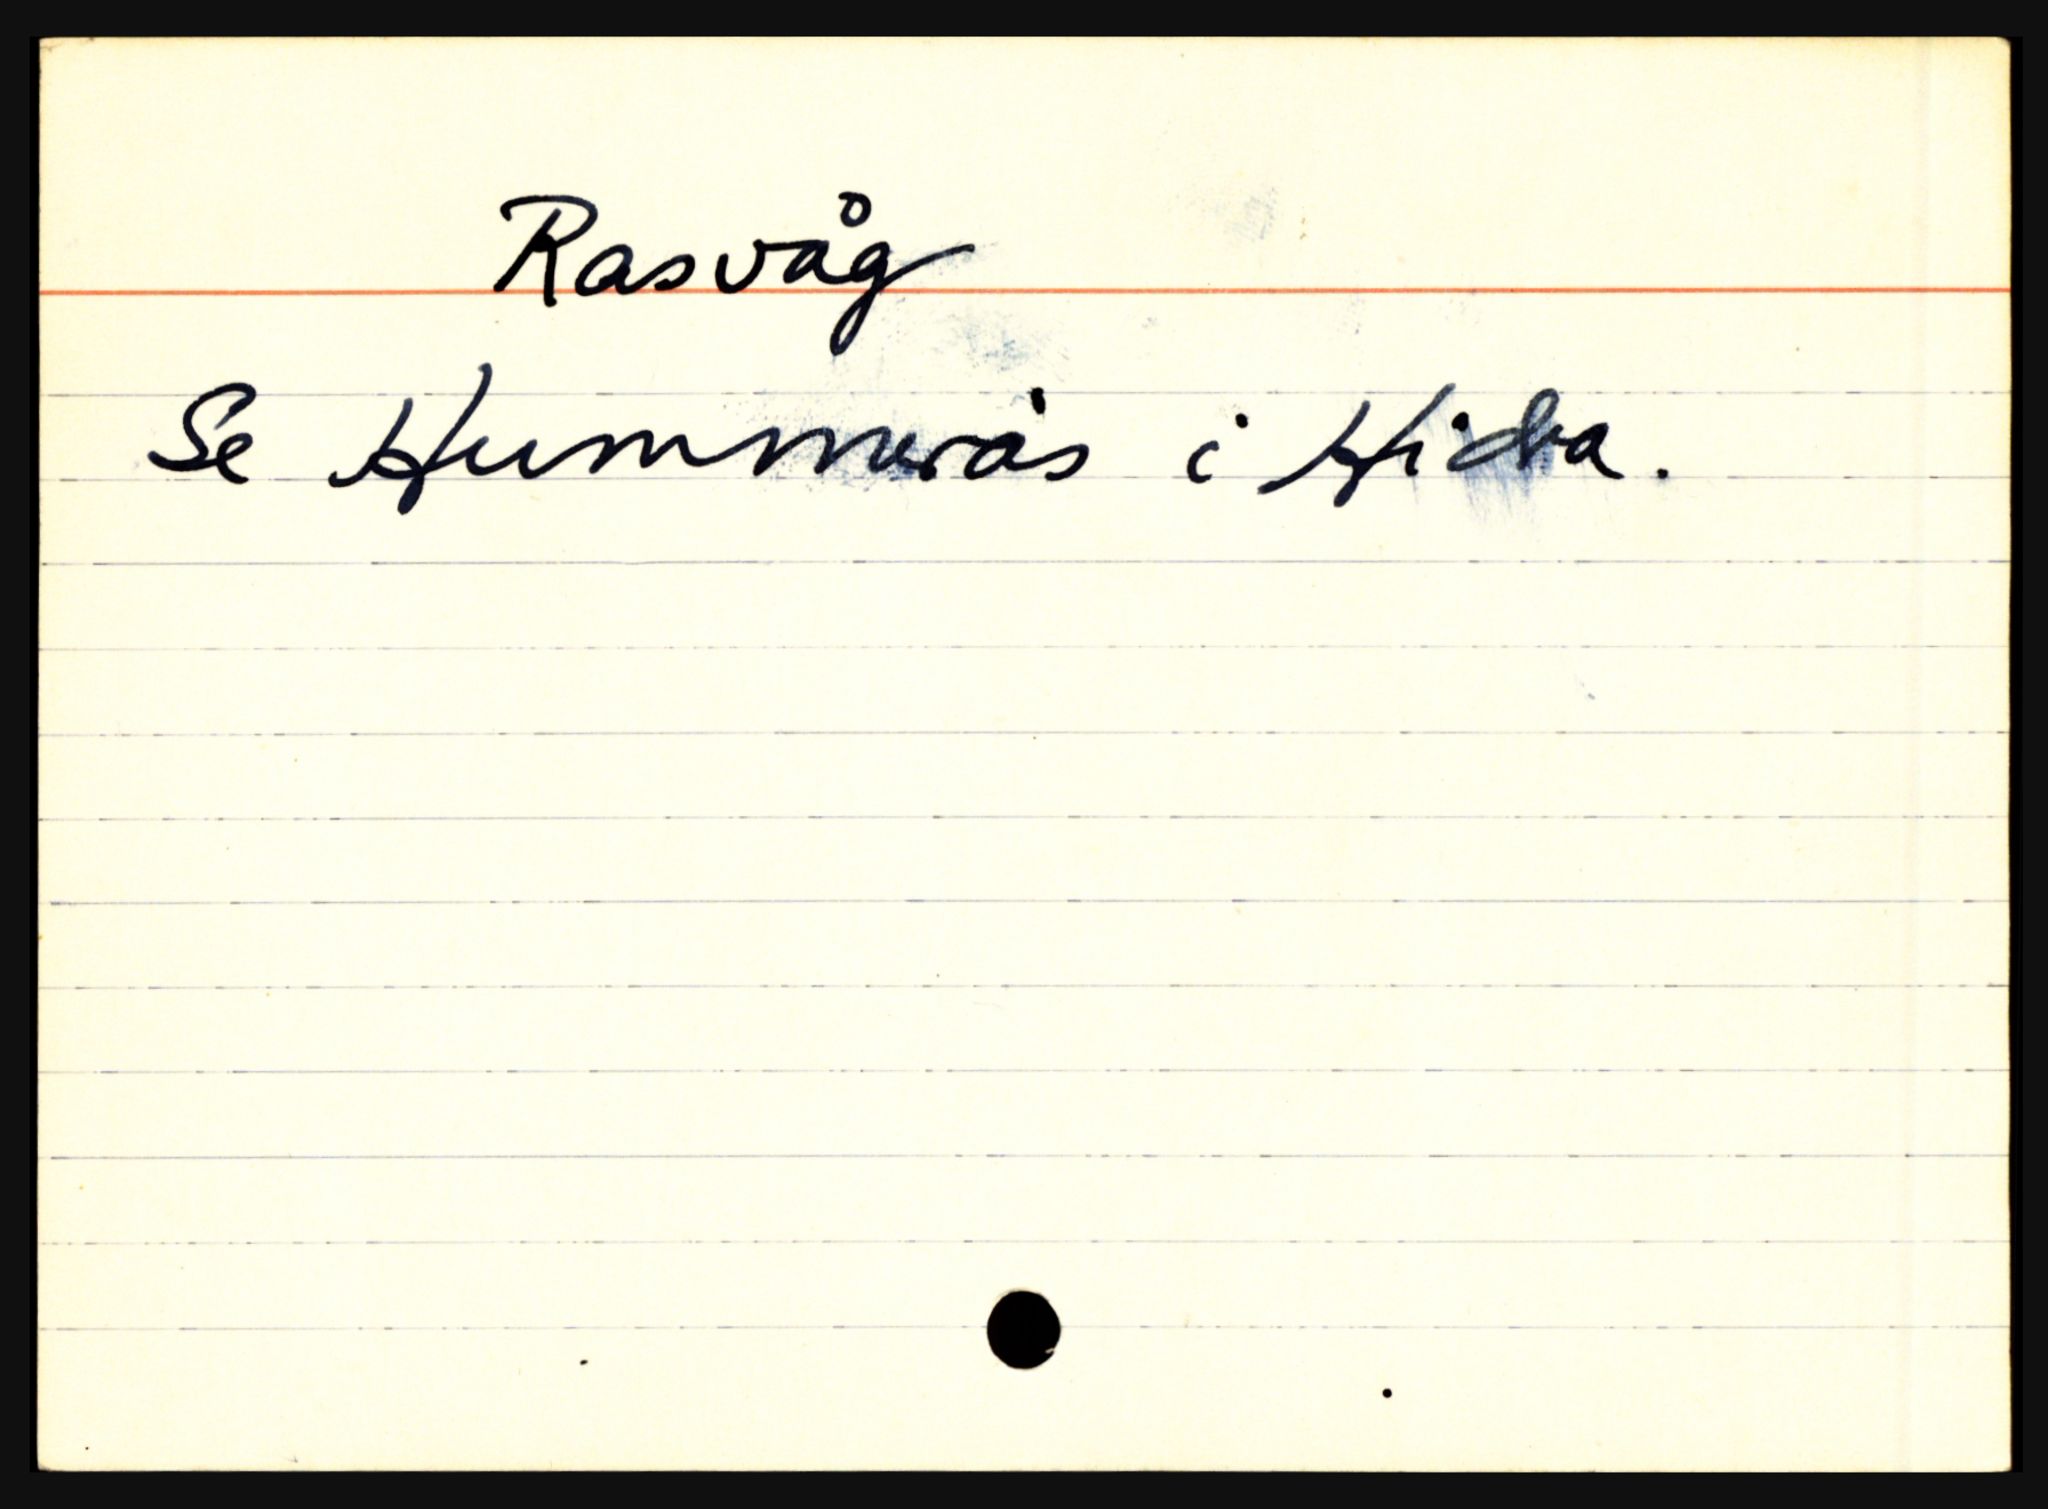 Rasvåg
Se Hummerås i Hidra.